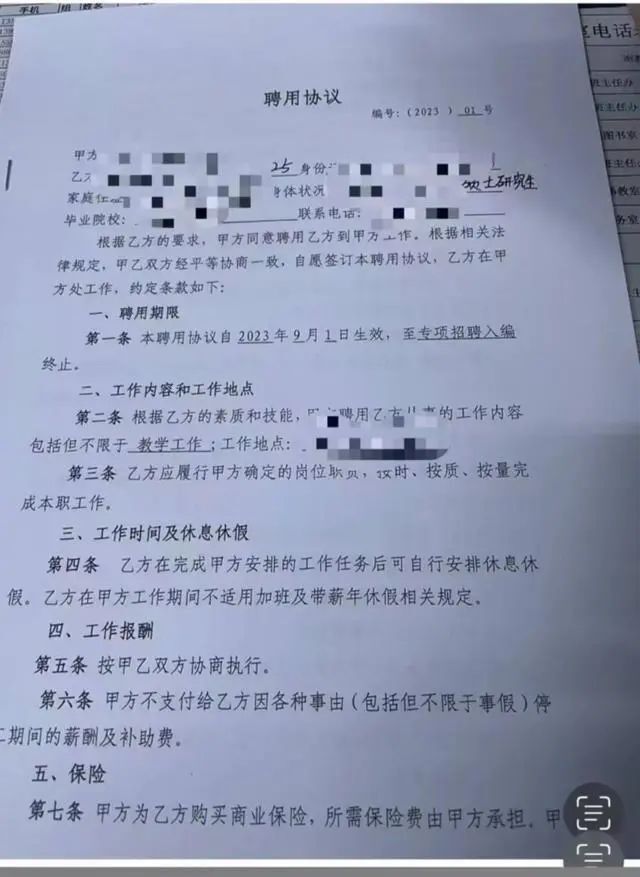 手机 组 姓名
室电话
班主任办
班主任办
图书室
班主任
教室
聘用协议
编号：（2023 ）01 号
甲方
25 身份
家庭住 身体状况 硕士研究生
毕业院校： 联系电话：
根据乙方的要求，甲方同意聘用乙方到甲方工作。根据相关法
律规定，甲乙双方经平等协商一致，自愿签订本聘用协议，乙方在甲
方处工作，约定条款如下：
一、聘用期限
第一条 本聘用协议自 2023 年 9 月 1 日生效，至专项招聘入编
终止。
二、工作内容和工作地点
第二条 根据乙方的素质和技能，甲方聘用乙方从事的工作内容
包括但不限于 教学工作 ；工作地点：
第三条 乙方应履行甲方确定的岗位职责，按时、按质、按量完
成本职工作。
三、工作时间及休息休假
第四条 乙方在完成甲方安排的工作任务后可自行安排休息休
假。乙方在甲方工作期间不适用加班及带薪年休假相关规定。
四、工作报酬
第五条 按甲乙双方协商执行。
第六条 甲方不支付给乙方因各种事由（包括但不限于事假）停
工期间的薪酬及补助费。
五、保险
第七条 甲方为乙方购买商业保险，所需保险费由甲方承担。甲